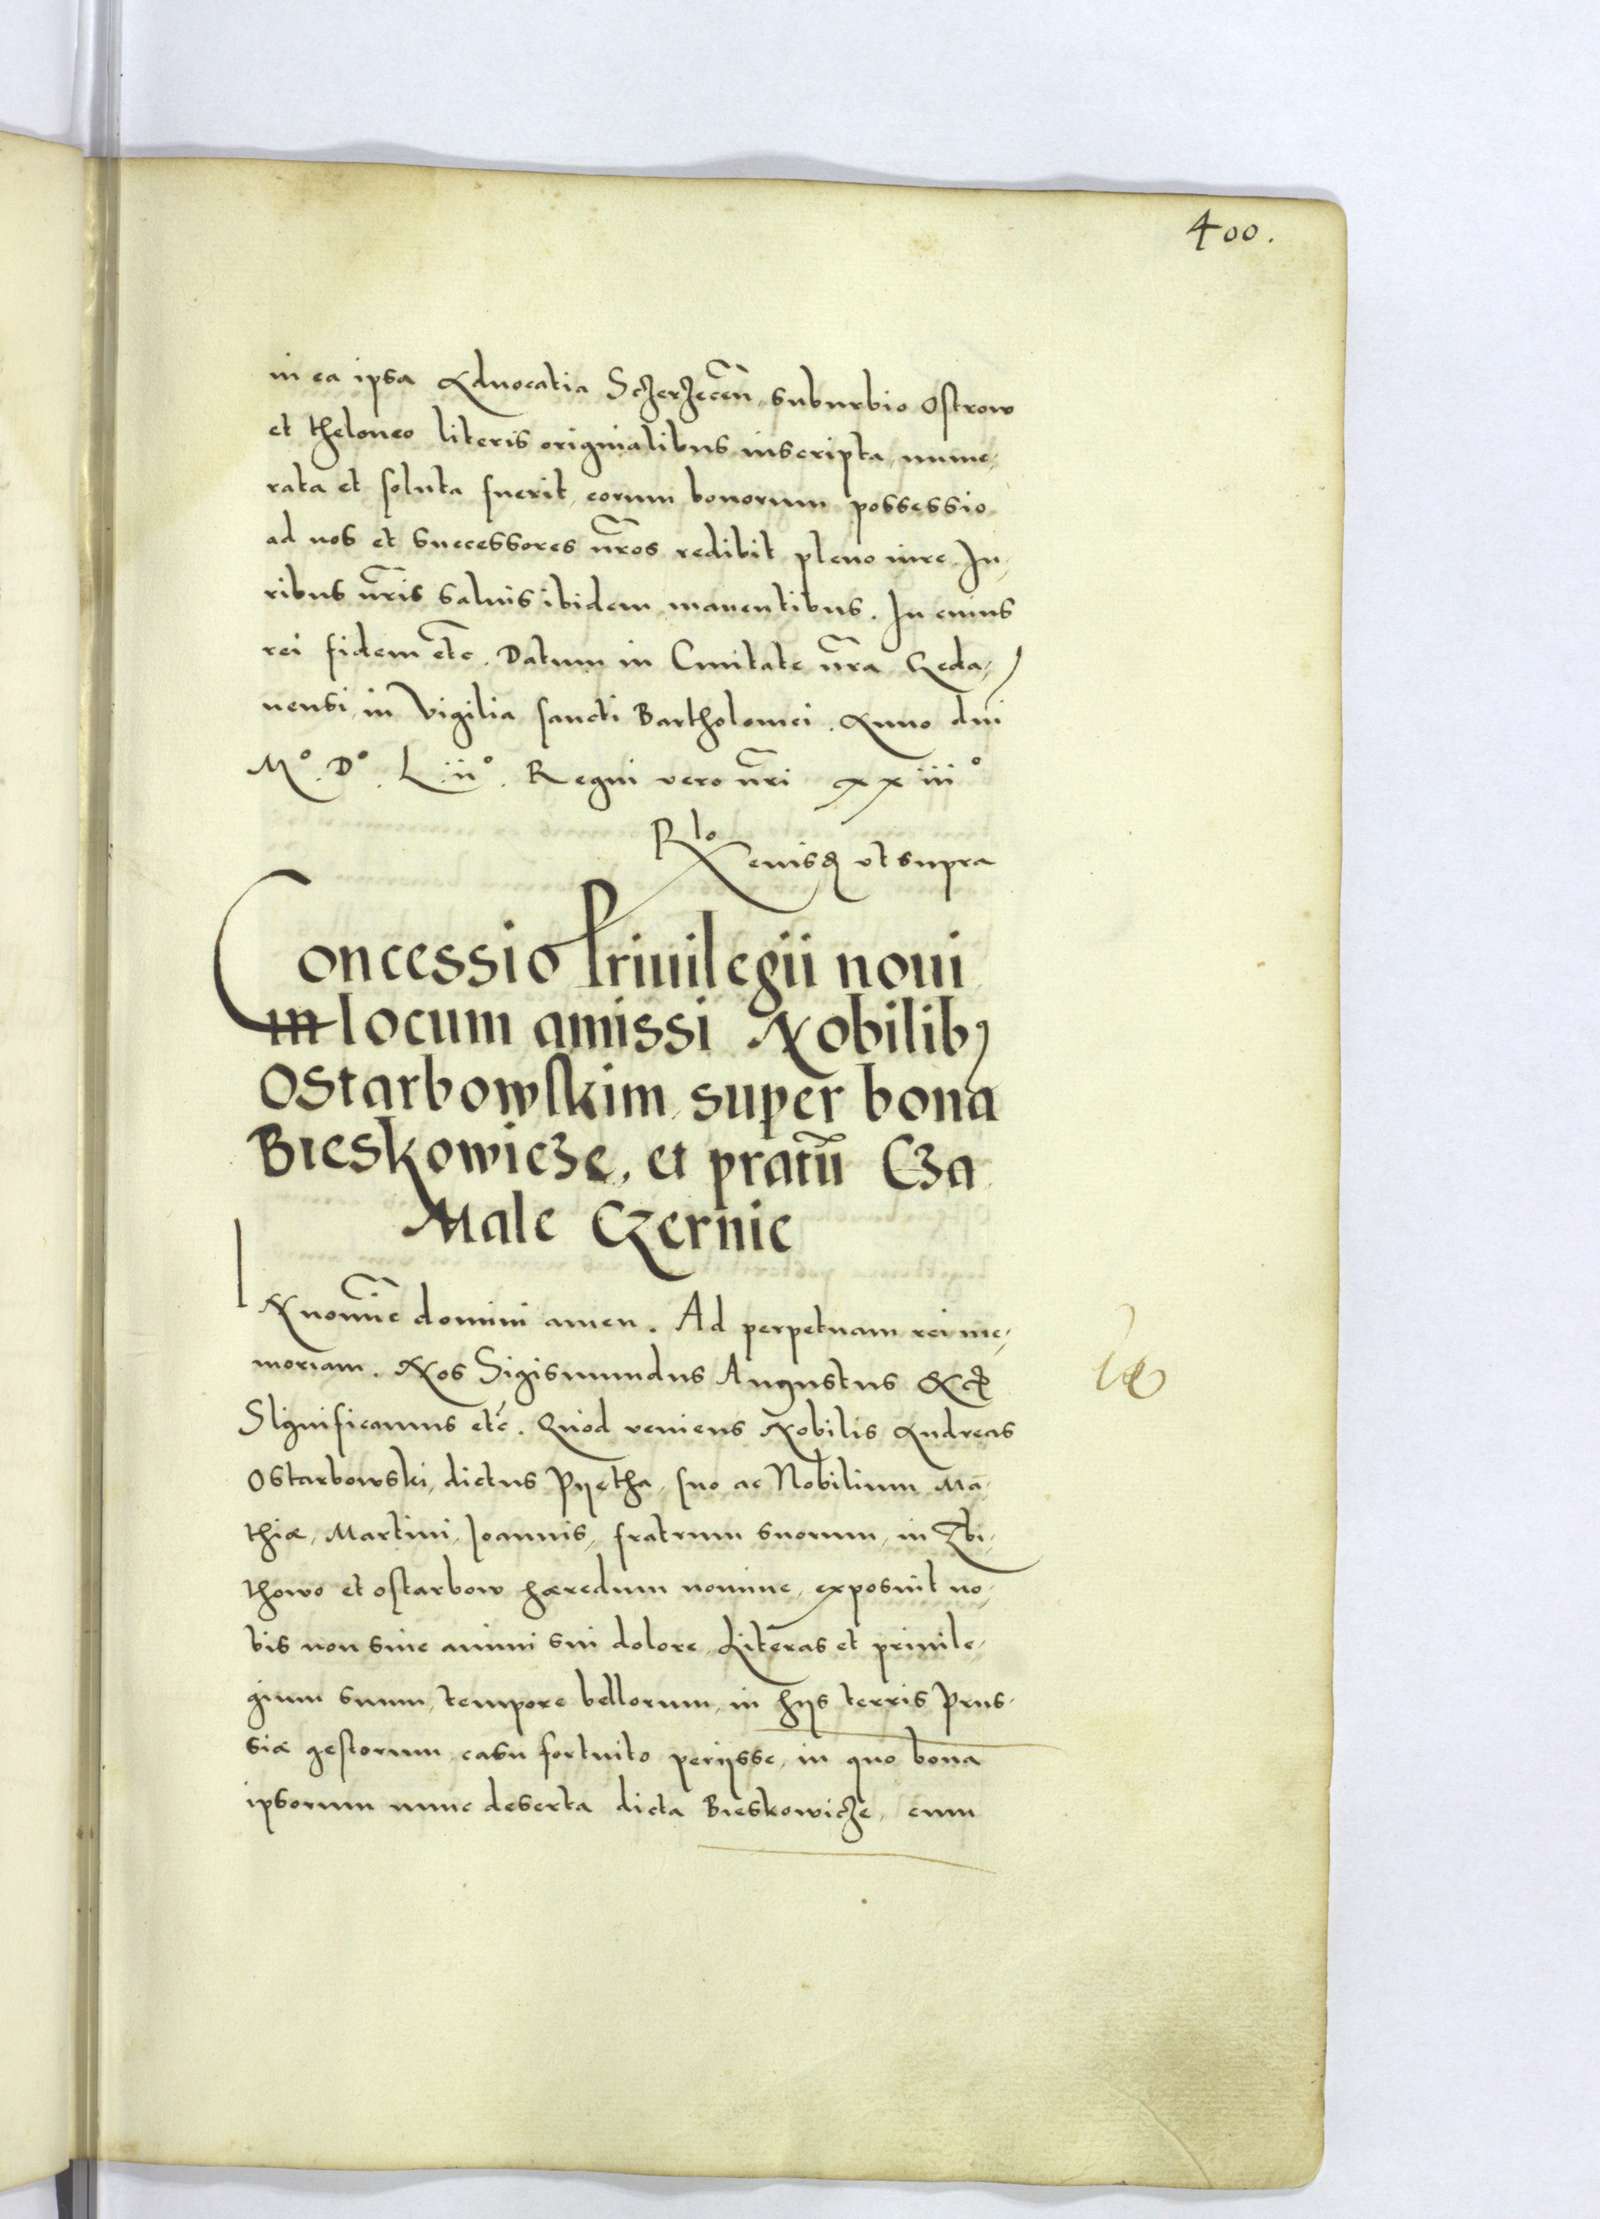 400.
in ea ipsa Aduocatia Sczerzecen̄, suburbio Ostrow
et theloneo literis originalibus inscripta, nume,
rata et soluta fuerit, eorum bonorum possessio
ad nos et successores nr̄os redibit pleno iure. Iu,
ribus nr̄is saluis ibidem manentibus. In cuius
rei fidem etc̄. Datum in Ciuitate nr̄a Geda,
nensi, in Vigilia sancti Bartholomei. Anno dni
Mº. Dº. L iiº. Regni vero nr̄i xxiiiº
Rlo
euisꝗ vt supra
Concessio Priuilegii noui
in locum amissi Nobilibꝰ
Ostarbowskim, super bona
Bieskowicze, et pratū Cza
Male Czernie
IN nomīe domini amen. Ad perpetuam rei me,
moriam. Nos Sigismundus Augustus &c
Significamus etc̄. Quod veniens Nobilis Andreas
Ostarbowski, dictus Pyetha, suo ac Nobilium Ma,
thiæ, Martini, Joannis, fratrum suorum, in Zbi,
thowo et ostarbow hæredum nomine, exposuit no,
bis non sine animi sui dolore, Literas et priuile,
gium suum, tempore bellorum, in hijs terris Prus,
siæ gestorum, casu fortuito perijsse, in quo bona
ipsorum nunc deserta dicta Bieskowicze, cum